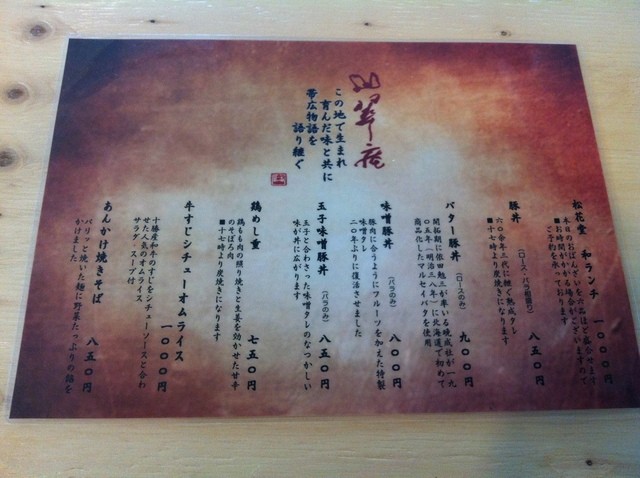 松花堂 和ランチ 一〇〇〇円
本日のおばんざいを六品ほど盛合せます
■お時間がかかる場合がございますので
ご予約を承っております
豚丼(ロース・バラ相盛り) 八五〇円
六〇余年三代に継ぐ熟成タレ
■十七時より炭焼きになります
バター豚丼(ロースのみ) 九〇〇円
開拓期に依田勉三が率いる晩成社が一九
〇五年(明治三八年)に北海道で初めて
商品化したマルセイバタを使用
味噌豚丼(バラのみ) 八〇〇円
豚肉に合うようにフルーツを加えた特製
味噌タレ
二〇年ぶりに復活させました
この地で生まれ
育んだ味と共に
帯広物語を
語り継ぐ
玉子味噌豚丼(バラのみ) 八五〇円
玉子と合わさった味噌タレのなつかしい
味が丼に広がります
鶏めし重 七五〇円
鶏もも肉の照り焼きと生姜を効かせた甘辛
のそぼろ肉
■十七時より炭焼きになります
牛すじシチューオムライス 一〇〇〇円
十勝産和牛のすじをシチューソースと合わ
せた人気のオムライス
サラダ・スープ付
あんかけ焼きそば 八五〇円
パリッと焼いた麺に野菜たっぷりの餡を
かけました